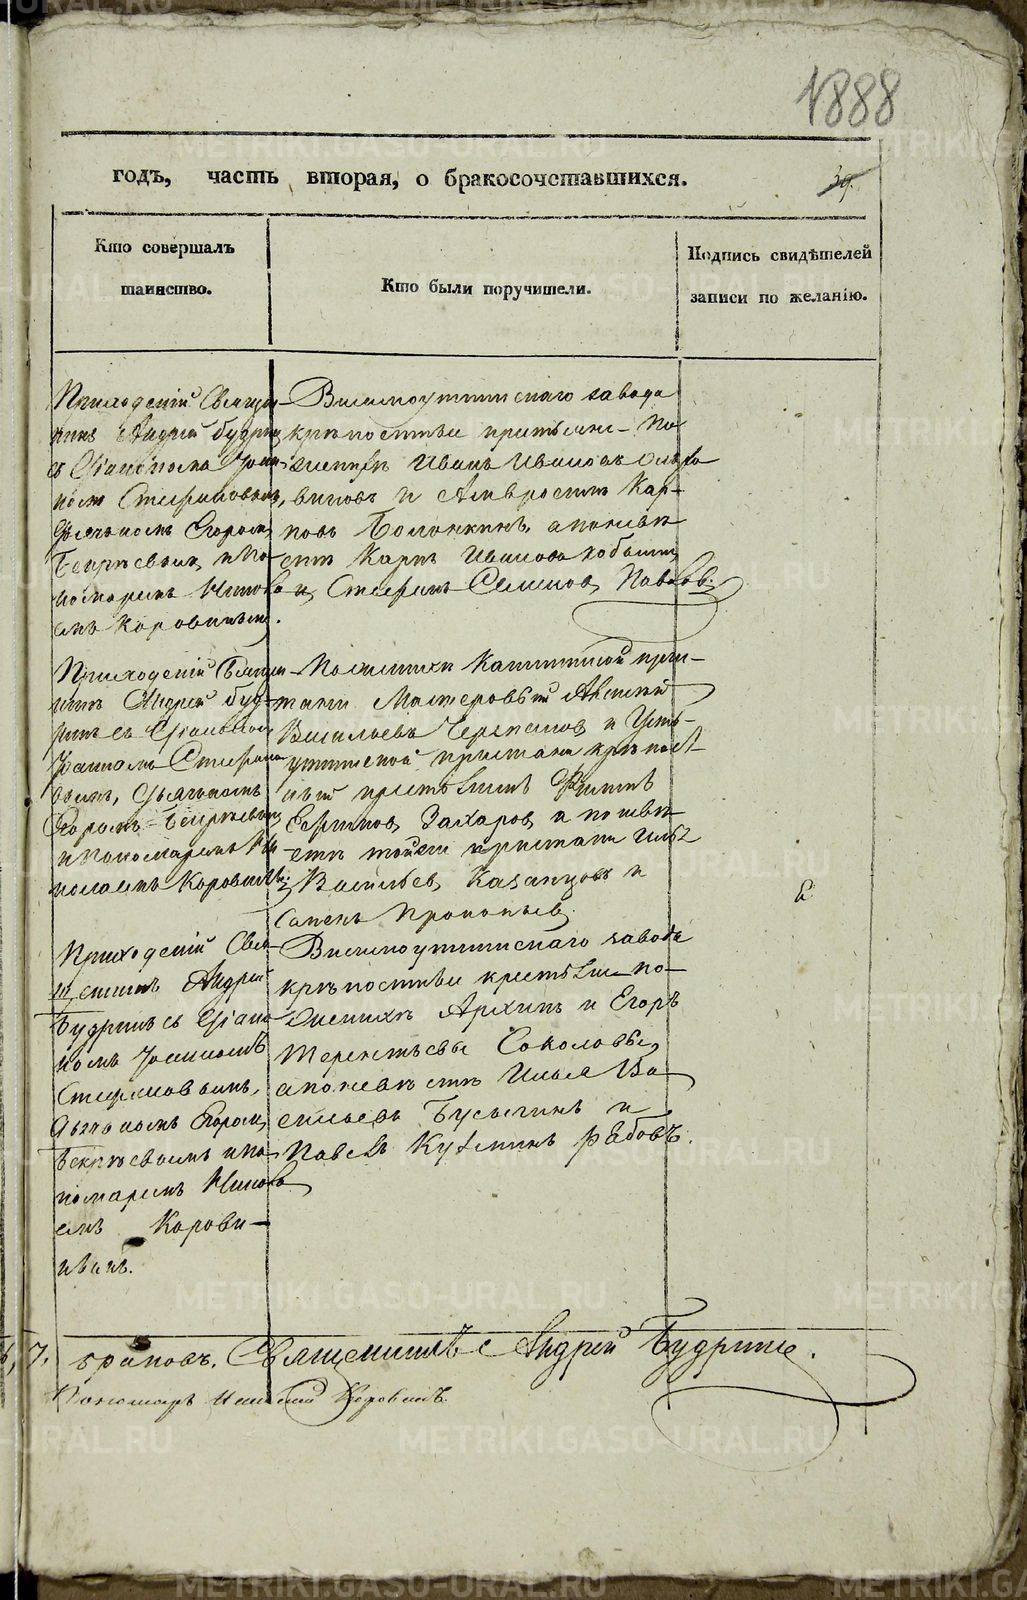 1888
годъ, часть вторая, о бракосочетавшихся.
39.
Кто совершалъ
таинство.
Кто были поручители.
Подпись свидѣтелей
записи по желанію.
Приходскій Священ-
никъ Андрей Будринъ
съ Діакономъ Іоан-
номъ Стефановымъ,
Дьячкомъ Егоромъ
и По-
номаремъ Никола-
емъ Коровинымъ.
Висимоуткинскаго завода
крѣпостные крестьяне - По
женихѣ Иванъ Ивановъ
и Амвросій Кар-
повъ Болонкинъ, а по невѣ-
стѣ Карпъ Ивановъ
и Стефанъ Семеновъ Павловъ.
Приходскій Священ-
никъ Андрей Буд-
ринъ съ Діакономъ
Іоанномъ Стефано-
вымъ, Дьячкомъ
Егоромъ
и Пономаремъ Ни-
колаемъ Коровинымъ.
По женихѣ при-
стани Мастеровый
Васильевъ Черепановъ и Усть-
уткинской пристани крѣпост-
ный крестьянинъ Филиппъ
Ефимовъ Захаровъ а по невѣ-
стѣ тойже пристани Илья
Васильевъ Казанцовъ и
Прокопьевъ.
Приходскій Свя-
щенникъ Андрей
Будринъ съ Діако-
номъ Іоанномъ
Стефановымъ,
Дьячкомъ Егоромъ
и По-
номаремъ Никола-
емъ Корови-
нымъ.
Висимоуткинскаго завода
крѣпостные крестьяне по-
женихѣ Архипъ и Егоръ
Терентьевы Соколовы,
а по невѣстѣ Илья Ва-
сильевъ Бусыгинъ и
Павелъ Кузминъ Рябовъ.
7. браковъ. Священникъ Андрей Будринъ.
Пономарь Николай Коровинъ.